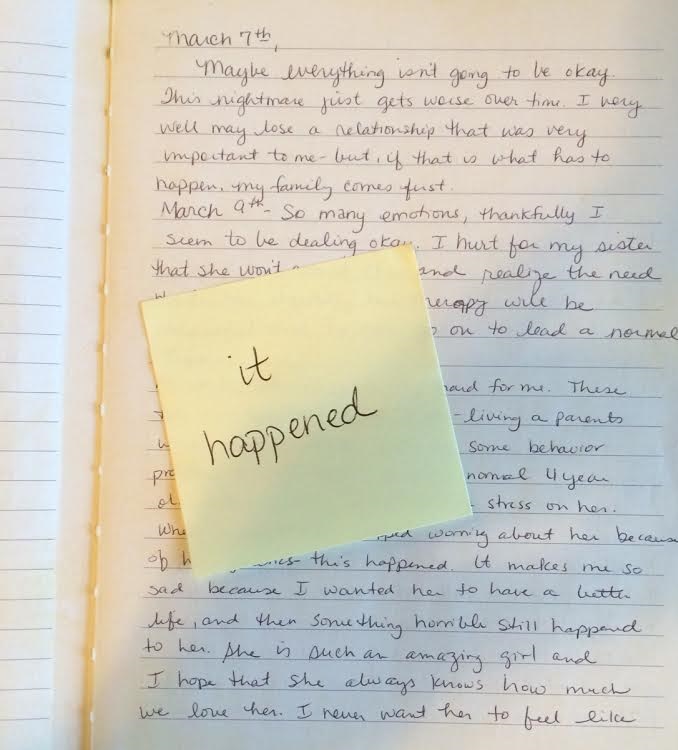 March 7th,
Maybe everything isn't going to be okay.
This nightmare just gets worse over time. I very
well may lose a relationship that was very
important to me - but, if that is what has to
happen, my family comes first.
March 9th - So many emotions, thankfully I
seem to be dealing okay. I hurt for my sister
that she won't and realize the need
will be
on to lead a normal
hard for me. These
- living a parents
some behavior
normal 4 year
stress on her.
worring about her because
of this happened. It makes me so
sad because I wanted her to have a better
life, and then something horrible still happend
to her. She is such an amazing girl and
I hope that she always knows how much
we love her. I never want her to feel like
it
happened